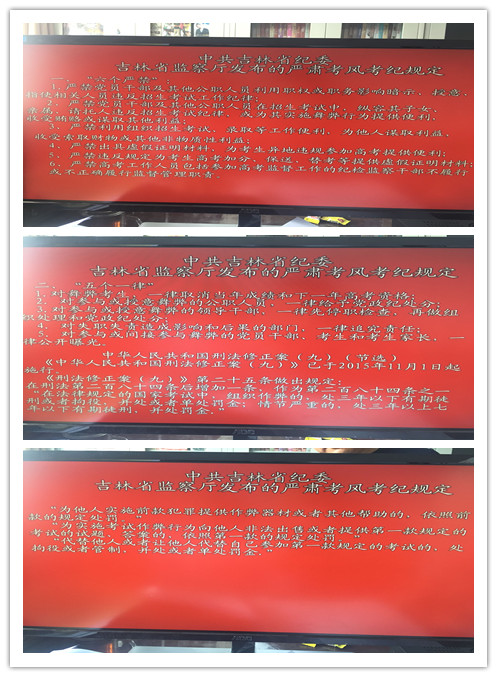 中共吉林省纪委
吉林省监察厅发布的严肃考风考纪规定
一、“六个严禁”：
1.严禁党员干部及其他公职人员利用职权或职务影响暗示、授意、
指使相关人员违反招生考试工作纪律；
2、严禁党员干部及其他公职人员在招生考试中，纵容其子女、
亲属、请托人违反招生考试纪律，或为其实施舞弊行为提供便利，
收受贿赂或谋取其他利益；
3、严禁利用组织招生考试、录取等工作便利，为他人谋取利益，
收受钱款财物或其他非物质性利益；
4、严禁出具虚假证明材料，为考生异地违规参加高考提供便利；
5、严禁违反规定为考生高考加分、保送、替考等提供虚假证明材料；
6、严禁高考工作人员包括参加高考监督工作的纪检监察干部不履行
或不正确履行监督管理职责。
中共吉林省纪委
吉林省监察厅发布的严肃考风考纪规定
二、“五个一律”
1.对舞弊考生，一律取消当年成绩和下一年高考资格；
2、对参与或授意舞弊的公职人员，一律给予党政纪处分；
3、对参与或授意舞弊的领导干部，一律先停职检查，再做组
织处理和党政纪处分；
4、对失职失责造成影响和后果的部门，一律追究责任；
5、对参与或间接参与舞弊的党员干部、考生和考生家长，一
律公开曝光。
中华人民共和国刑法修正案（九）（节选）
《中华人民共和国刑法修正案（九）》已于2015年11月1日起
施行。
《刑法修正案（九）》第二十五条做出规定：
在刑法第二百八十四条后增加一条，作为第二百八十四条之一
“在法律规定的国家考试中，组织作弊的，处三年以下有期徒
刑或者拘役，并处或者单处罚金；情节严重的，处三年以上七
年以下有期徒刑，并处罚金。”
中共吉林省纪委
吉林省监察厅发布的严肃考风考纪规定
“为他人实施前款犯罪提供作弊器材或者其他帮助的，依照前
款的规定处罚。”
“为实施考试作弊行为向他人非法出售或者提供第一款规定的
考试的试题、答案的，依照第一款的规定处罚。”
“代替他人或者让他人代替自己参加第一款规定的考试的，处
拘役或者管制，并处或者单处罚金。”